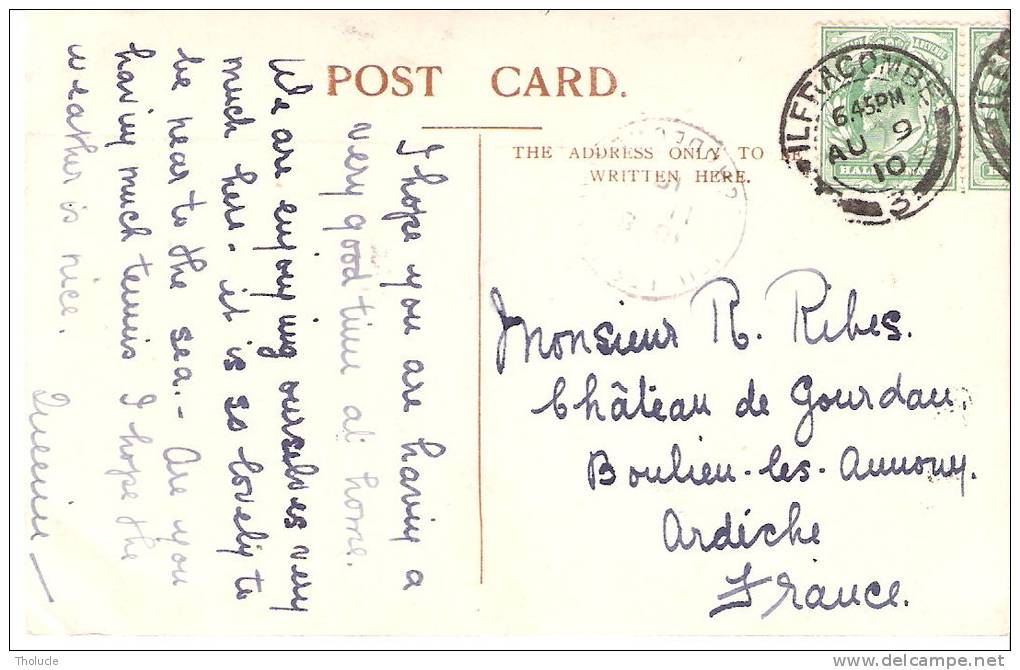 POST CARD.
THE ADDRESS ONLY TO BE
WRITTEN HERE.
ILFRACOMBE
6.45PM
AU 9
10
3
I hope you are having a
very good time at home.
We are enjoying ourselves very
much here. it is so lovely to
be near to the sea.- Are you
having much tennis I hope the
weather is nice.
Monsieur R. Ribes.
Château de Gourdan.
Boulieu-les-Annonay.
Ardèche
France.
Tholucle
www.delcampe.net